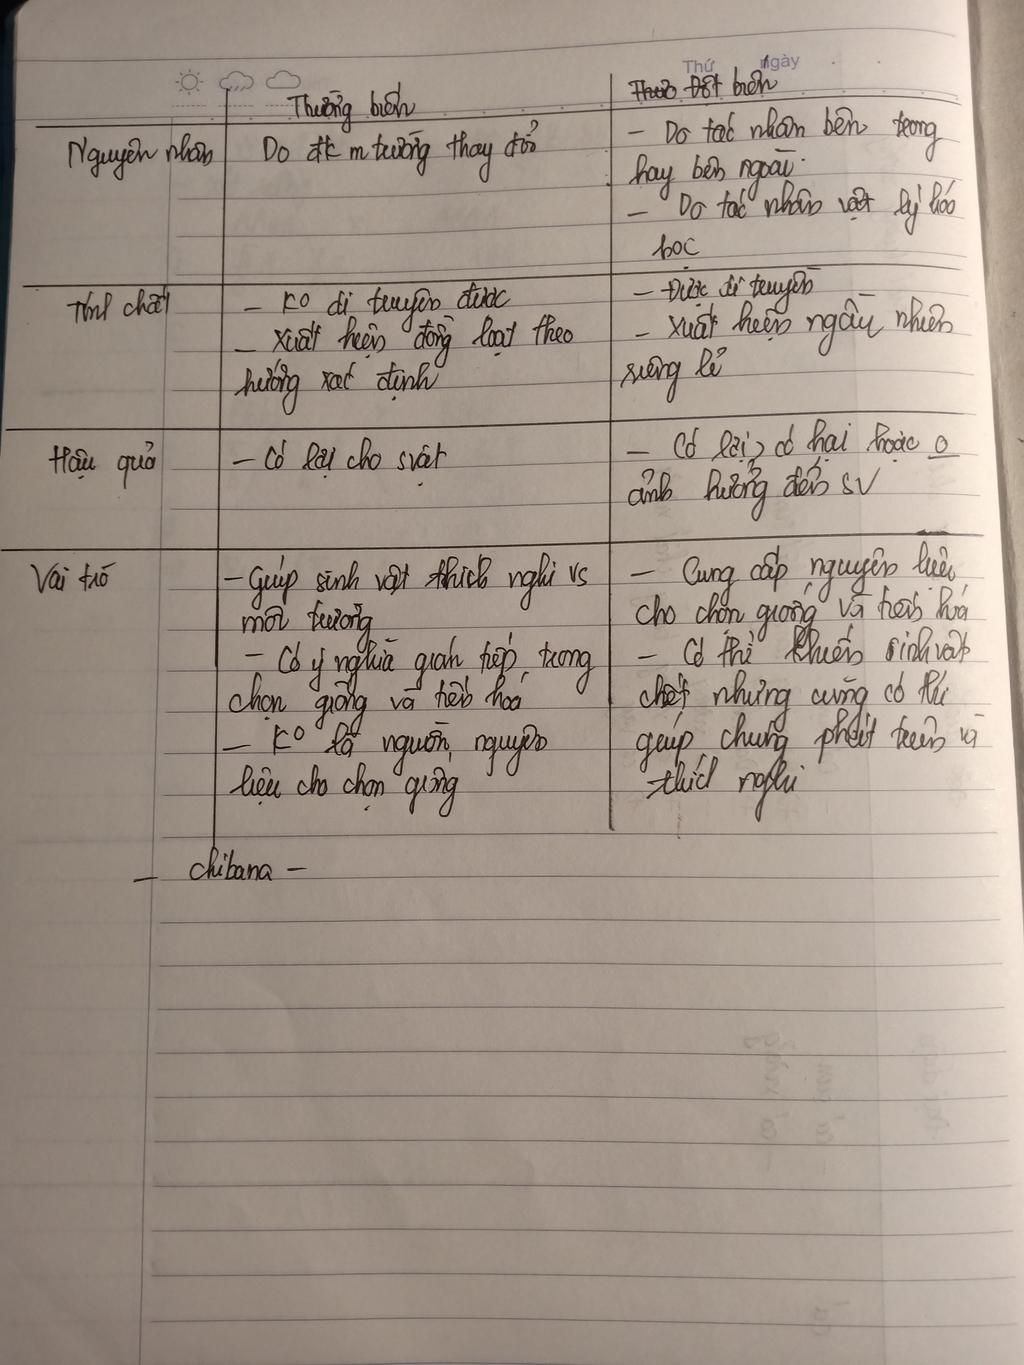 Thứ Ngày
Thường biến
Đột biến
Nguyên nhân
Do đk m trường thay đổi
- Do tác nhân bên trong
hay bên ngoài.
- Do tác nhân vật lý hóa
học
Tính chất
- Kº di truyền được
- Xuất hiện đồng loạt theo
hướng xác định
- Được di truyền
- Xuất hiện ngẫu nhiên
riêng lẻ
Hậu quả
- Có lợi cho svật
- Có lợi, có hại hoặc o
ảnh hưởng đến SV
Vai trò
- Giúp sinh vật thích nghi vs
môi trường
- Có ý nghĩa gián tiếp trong
chọn giống và tiến hoá
- Kº là nguồn nguyên
liệu cho chọn giống
- Cung cấp nguyên liệu
cho chọn giống và tiến hoá
- Có thể khiến sinh vật
chết nhưng cũng có thể
giúp chúng phát triển và
thích nghi
- chibana -